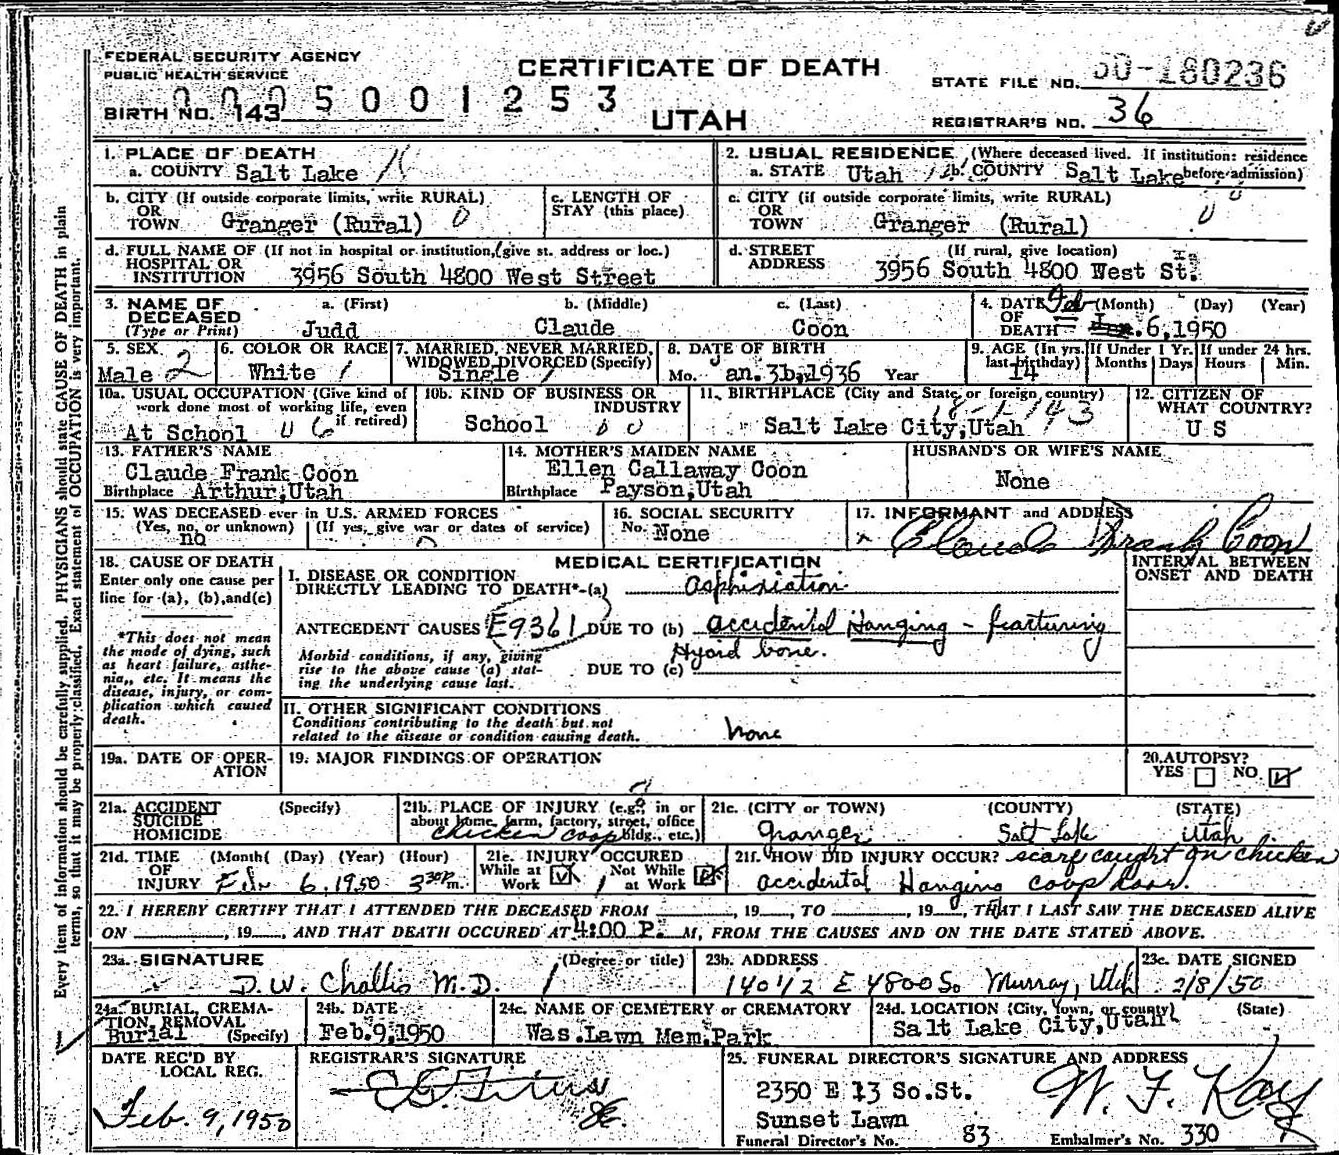 FEDERAL SECURITY AGENCY
PUBLIC HEALTH SERVICE
CERTIFICATE OF DEATH
UTAH
STATE FILE NO. 50-180236
REGISTRAR'S NO. 36
0005001253
BIRTH NO. 143
1. PLACE OF DEATH
a. COUNTY Salt Lake
b. CITY (If outside corporate limits, write RURAL)
OR
TOWN Granger (Rural)
c. LENGTH OF
STAY (this place)
d. FULL NAME OF (If not in hospital or institution, give st. address or loc.)
HOSPITAL OR
INSTITUTION 3956 South 4800 West Street
2. USUAL RESIDENCE (Where deceased lived. If institution: residence
before admission)
a. STATE Utah b. COUNTY Salt Lake
c. CITY (if outside corporate limits, write RURAL)
OR
TOWN Granger (Rural)
d. STREET (If rural, give location)
ADDRESS 3956 South 4800 West St.
3. NAME OF DECEASED a. (First) b. (Middle) c. (Last)
(Type or Print) Judd Claude Coon
4. DATE OF DEATH (Month) (Day) (Year)
Feb Jan. 6, 1950
5. SEX
Male 2
6. COLOR OR RACE
White 1
7. MARRIED, NEVER MARRIED,
WIDOWED, DIVORCED (Specify)
Single 1
8. DATE OF BIRTH
Mo. Jan. 31, 1936 Year
9. AGE (In yrs. last birthday) 14
If Under 1 Yr. Months Days
If under 24 hrs. Hours Min.
10a. USUAL OCCUPATION (Give kind of
work done most of working life, even
if retired)
At School
10b. KIND OF BUSINESS OR
INDUSTRY
School
11. BIRTHPLACE (City and State, or foreign country)
Salt Lake City, Utah
12. CITIZEN OF
WHAT COUNTRY?
U S
13. FATHER'S NAME
Claude Frank Coon
Birthplace Arthur, Utah
14. MOTHER'S MAIDEN NAME
Ellen Callaway Coon
Birthplace Payson, Utah
HUSBAND'S OR WIFE'S NAME
None
15. WAS DECEASED ever in U.S. ARMED FORCES
(Yes, no, or unknown) (If yes, give war or dates of service)
no
16. SOCIAL SECURITY
No. None
17. INFORMANT and ADDRESS
x Claude Frank Coon
18. CAUSE OF DEATH
Enter only one cause per
line for (a), (b), and (c)
*This does not mean
the mode of dying, such
as heart failure, asthe-
nia, etc. It means the
disease, injury, or com-
plication which caused
death.
MEDICAL CERTIFICATION
INTERVAL BETWEEN
ONSET AND DEATH
I. DISEASE OR CONDITION
DIRECTLY LEADING TO DEATH*-(a) asphixiation
ANTECEDENT CAUSES E9361 DUE TO (b) accidental Hanging - fracturing
Hyoid bone.
Morbid conditions, if any, giving
rise to the above cause (a) stat-
ing the underlying cause last.
DUE TO (c)
II. OTHER SIGNIFICANT CONDITIONS
Conditions contributing to the death but not
related to the disease or condition causing death.
None
19a. DATE OF OPER-
ATION
19. MAJOR FINDINGS OF OPERATION
20. AUTOPSY?
YES NO
21a. ACCIDENT (Specify)
SUICIDE
HOMICIDE
21b. PLACE OF INJURY (e.g., in or
about home, farm, factory, street, office
bldg., etc.)
chicken coop
21c. (CITY or TOWN) (COUNTY) (STATE)
Granger Salt Lake Utah
21d. TIME (Month) (Day) (Year) (Hour)
OF
INJURY Feb 6, 1950 3 30 P m.
21e. INJURY OCCURED
While at Work Not While at Work
21f. HOW DID INJURY OCCUR? scarf caught on chicken
accidental Hanging coop door.
22. I HEREBY CERTIFY THAT I ATTENDED THE DECEASED FROM , 19 , TO , 19 , THAT I LAST SAW THE DECEASED ALIVE
ON , 19 , AND THAT DEATH OCCURED AT 4:00 P. M, FROM THE CAUSES AND ON THE DATE STATED ABOVE.
23a. SIGNATURE (Degree or title)
D.W. Challis M.D.
23b. ADDRESS
140 1/2 E 4800 So Murray, Utah
23c. DATE SIGNED
2/8/50
24a. BURIAL, CREMA-
TION, REMOVAL
Burial (Specify)
24b. DATE
Feb. 9, 1950
24c. NAME OF CEMETERY or CREMATORY
Was. Lawn Mem. Park
24d. LOCATION (City, town, or county) (State)
Salt Lake City, Utah
DATE REC'D BY
LOCAL REG.
Feb. 9, 1950
REGISTRAR'S SIGNATURE
25. FUNERAL DIRECTOR'S SIGNATURE AND ADDRESS
2350 E 13 So. St.
Sunset Lawn
W. F. Kay
Funeral Director's No. 83 Embalmer's No. 330
Every item of information should be carefully supplied. PHYSICIANS should state CAUSE OF DEATH in plain
terms, so that it may be properly classified. Exact statement of OCCUPATION is very important.